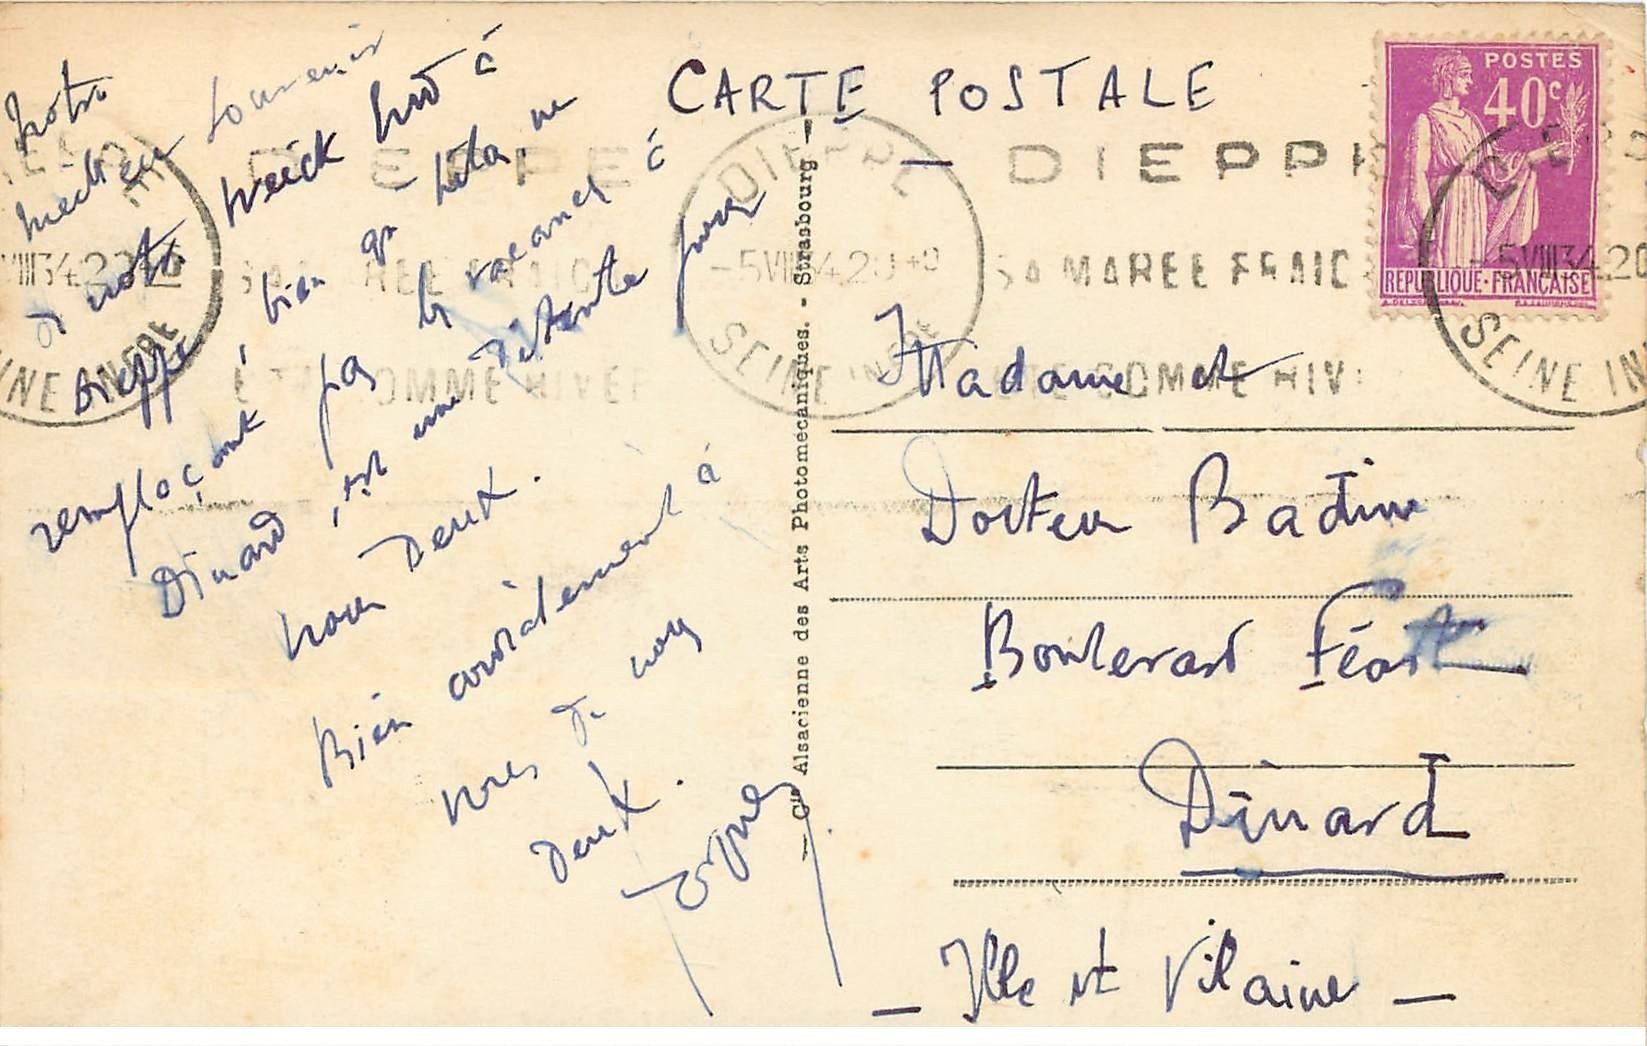 Notre
meilleur souvenir
de notre week end à
Dieppe, bien qu'hélas, ne
remplaçant pas les vacances à
Dinard, est une détente pour
nous deux.
Bien cordialement à
vous de nous
deux.
CARTE POSTALE
POSTES
40c
REPUBLIQUE·FRANÇAISE
DIEPPE
-5 VIII 34 20
SEINE INFRE
DIEPPE
SA MAREE FRAIC
ETE COMME HIVE
Cie Alsacienne des Arts Photomécaniques. - Strasbourg
Madame et
Docteur Badin
Boulevard Féart
Dinard
Ille et Vilaine